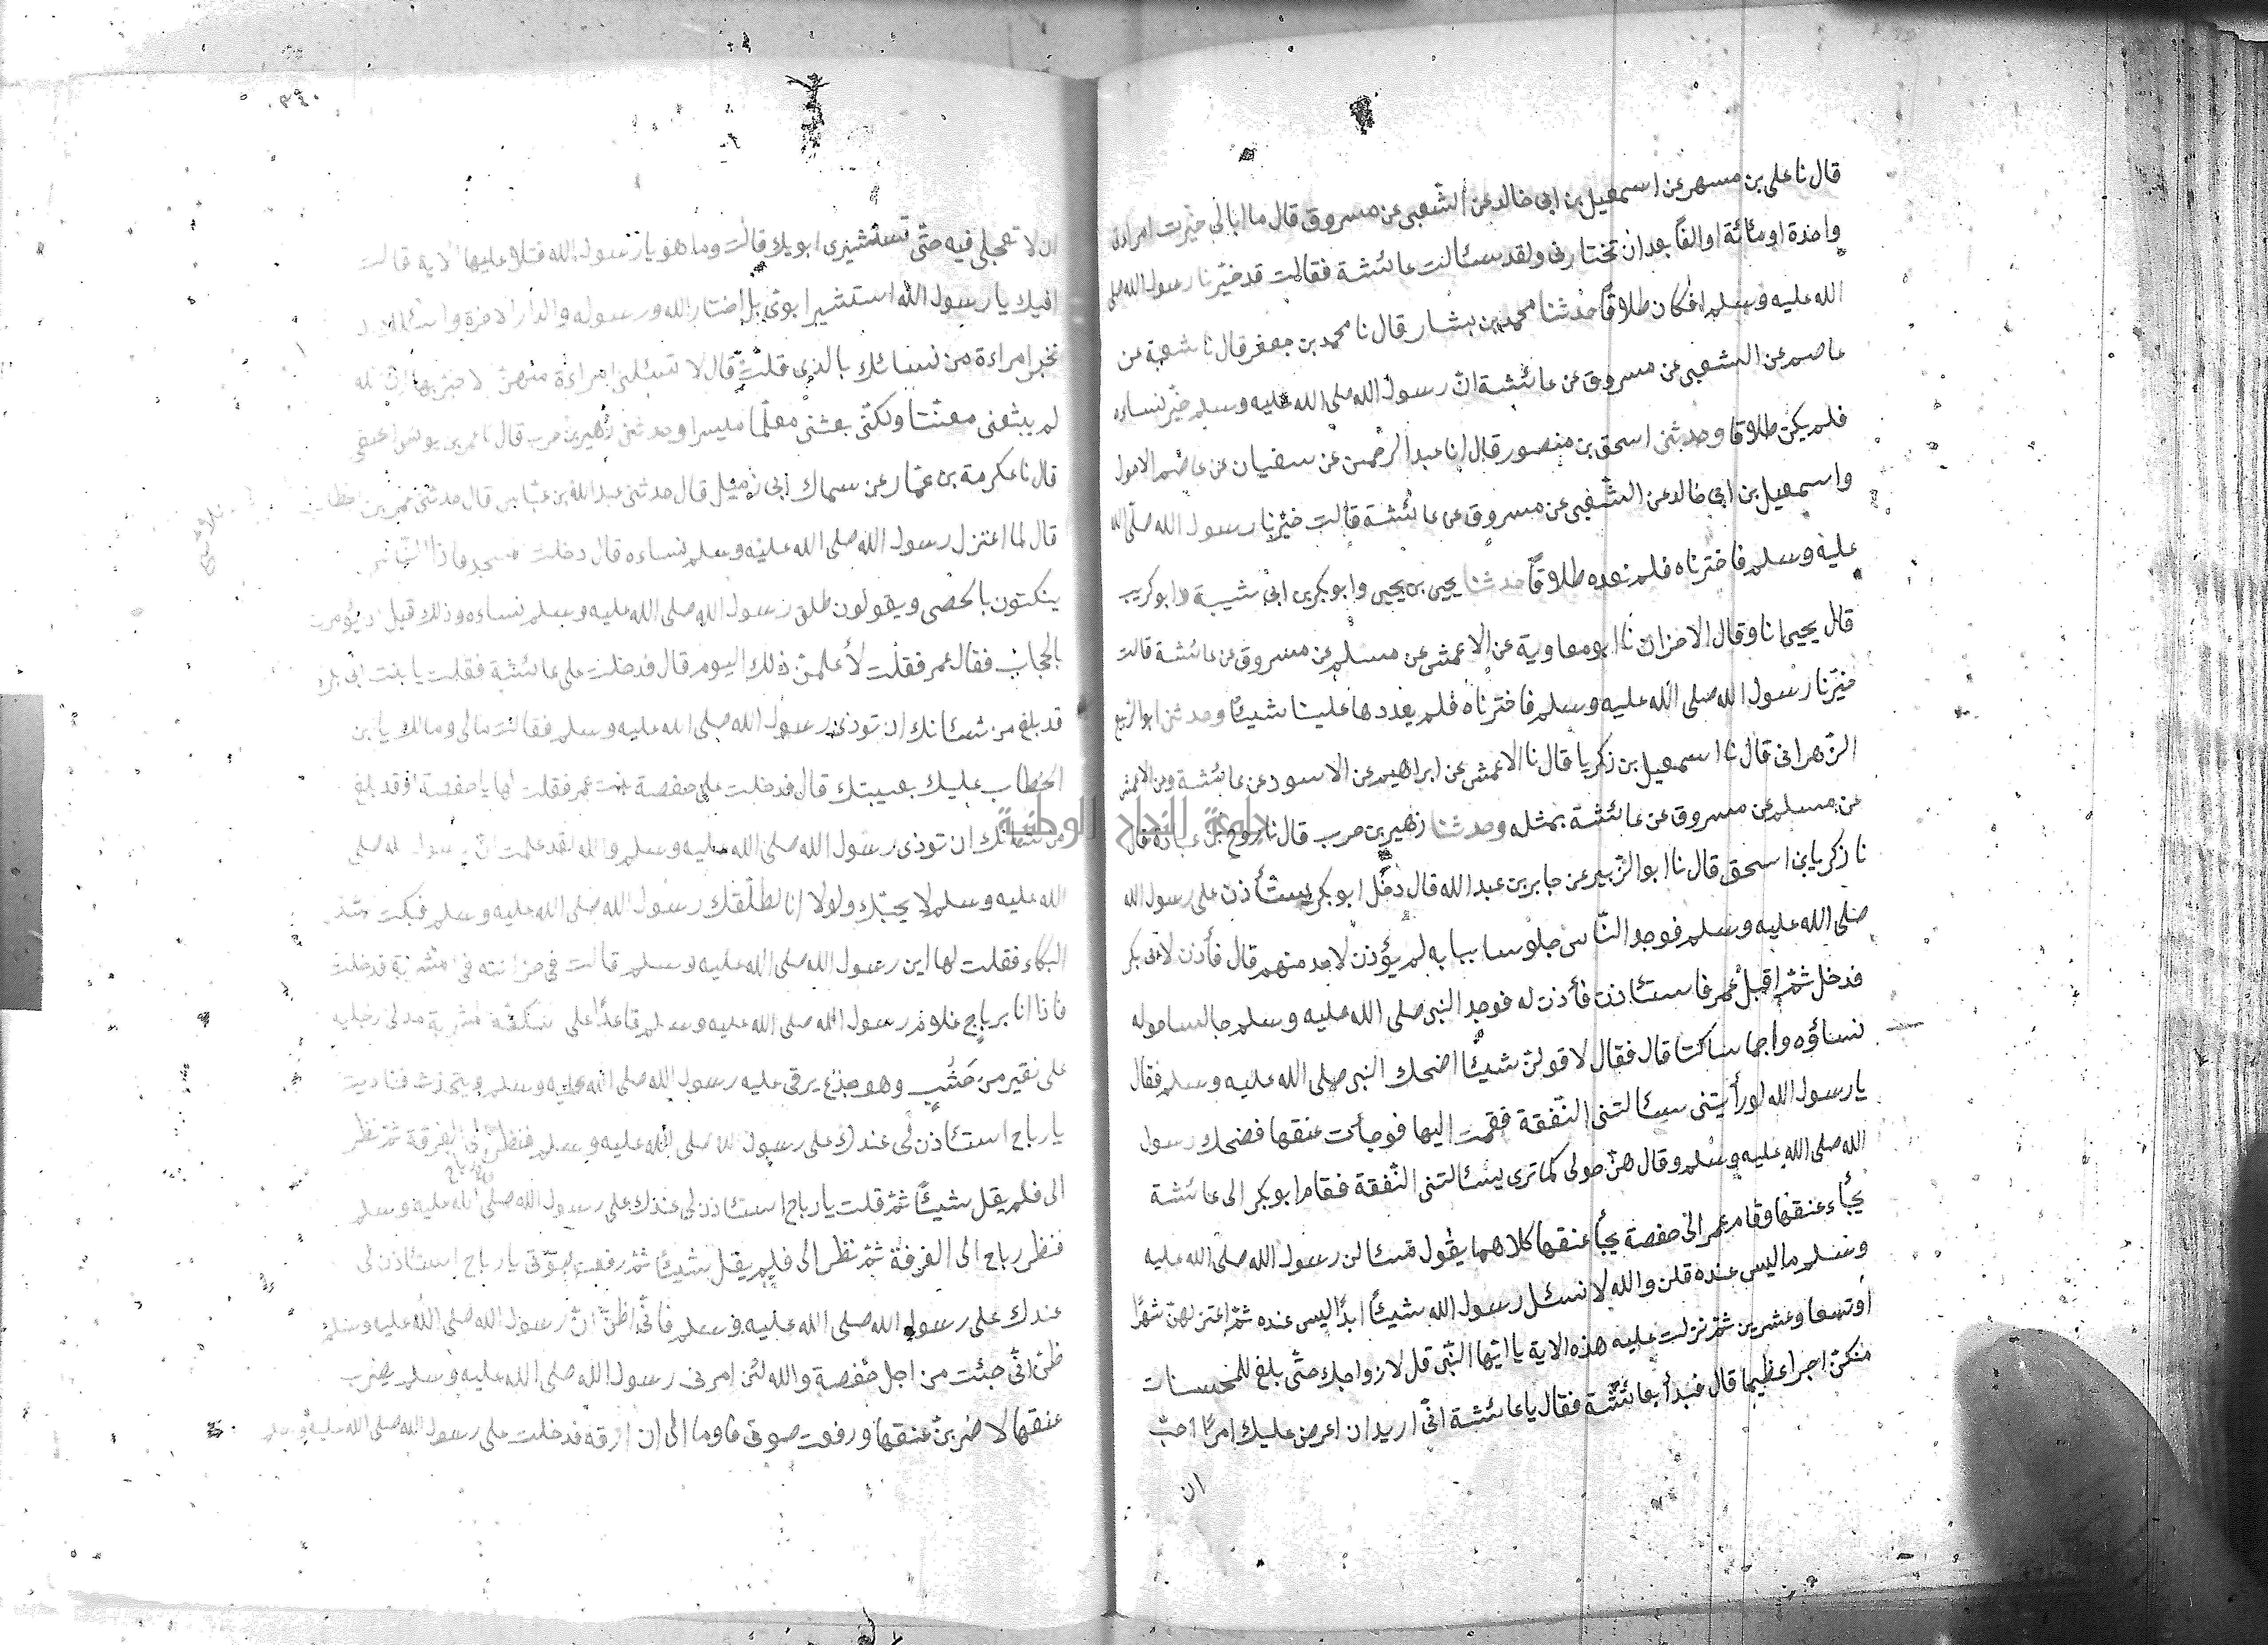 قال نا على بن مسهر عن اسمعيل بن ابى خالد عن الشعبى عن مسروق قال ما ابالى خيرت امراءتى
واحدة او مائة او الفاً بعد ان تختارنى ولقد سئالت عائشة فقالت قد خيرنا رسول الله صلى
الله عليه وسلم افكان طلاقاً حدثنا محمد بن بشار قال نا محمد بن جعفر قال نا شعبة عن
عاصم عن الشعبى عن مسروق عن عائشة انّ رسول الله صلى الله عليه وسلم خيّر نساءه
فلم يكن طلاقا وحدثنى اسحق بن منصور قال انا عبد الرحمن عن سفيان عن عاصم الاحول
واسمعيل بن ابى خالد عن الشعبى عن مسروق عن عائشة قالت خيّرنا رسول الله صلّى الله
عليه وسلم فاخترناه فلم نعده طلاقاً حدثنا يحيى بن يحيى وابو بكر بن ابى شيبة وابو كريب
قال يحيى انا وقال الاخران نا ابو معاوية عن الاعمش عن مسلم عن مسروق عن عائشة قالت
خيّرنا رسول الله صلى الله عليه وسلم فاخترناه فلم يعددها علينا شيئاً وحدثنى ابو الربيع
الزهرانى قال نا اسمعيل بن زكريا قال نا الاعمش عن ابراهيم عن الاسود عن عائشة وعن الاعمش
عن مسلم عن مسروق عن عائشة بمثله وحدثنا زهير بن حرب قال نا روح بن عبادة قال
نا زكريا بن اسحق قال نا ابو الزّبير عن جابر بن عبد الله قال دخل ابو بكر يستأذن على رسول الله
صلى الله عليه وسلم فوجد النّاس جلوسا ببابه لم يؤذن لاحد منهم قال فأذن لابى بكر
فدخل ثمّ اقبل عمر فاستئاذن فأذن له فوجد النبى صلى الله عليه وسلم جالسا حوله
نساؤه واجما ساكتا قال فقال لاقولنّ شيئاً اضحك النبى صلى الله عليه وسلم فقال
يا رسول الله لو رأيتنى سئالتنى النّفقة فقمت اليها فوجأت عنقها فضحك رسول
الله صلى الله عليه وسلم وقال هنّ حولى كما ترى يسئالتنى النّفقة فقام ابو بكر الى عائشة
يجأء عنقها وقام عمر الى حفصة يجأ عنقها كلاهما يقول تسئالن رسول الله صلى الله عليه
وسلم ما ليس عنده قلن والله لا نسئل رسول الله شيئاً ابدًا ليس عنده ثمّ اعتزلهنّ شهرًا
أو تسعا وعشرين ثمّ نزلت عليه هذه الاية يا ايّها النّبى قل لازواجك حتّى بلغ للمحسنات
منكنّ اجرا عظيما قال فبدأ بعائشة فقال يا عائشة انّى اريد ان اعرض عليك امرًا احبّ
ان
٣٩٠
ان لا تعجلى فيه حتّى تستشيرى ابويك قالت وما هو يا رسول الله فتلا عليها الاية قالت
افيك يا رسول الله استشير ابوىّ بل اختار الله ورسوله والدار الاخرة واسئالك
تخبر امراءة من نسائك بالذى قلت قال لا تسئلنى امراءة منهنّ الا اخبرتها انّ الله
لم يبعثنى معنّتا ولكن بعثنى معلّما ميسرا وحدثنى زهير بن حرب قال نا عمر بن يونس الحنفى
قال نا عكرمة بن عمّار عن سماك ابى زميل قال حدثنى عبد الله بن عبّاس قال حدثنى عمر بن خطاب
قال لما اعتزل رسول الله صلى الله عليه وسلم نساءه قال دخلت المسجد فاذا النّاس
ينكتون بالحصى ويقولون طلق رسول الله صلى الله عليه وسلم نساءه وذلك قبل ان يؤمرن
بالحجاب فقال عمر فقلت لأعلمنّ ذلك اليوم قال فدخلت على عائشة فقلت يا بنت ابى بكر
قد بلغ من شئانك ان توذى رسول الله صلى الله عليه وسلم فقالت مالى ومالك يا بن
الخطاب عليك بعيبتك قال فدخلت على حفصة بنت عمر فقلت لها يا حفصة اقد بلغ
من شئانك ان توذى رسول الله صلى الله عليه وسلم والله لقد علمت انّ رسول الله صلى
الله عليه وسلم لا يحبّك ولولا انا لطلّقك رسول الله صلى الله عليه وسلم فبكت اشدّ
البكاء فقلت لها اين رسول الله صلى الله عليه وسلم قالت فى خزانته فى المشربة فدخلت
فاذا انا برباح غلام رسول الله صلى الله عليه وسلم قاعدًا على اسكفّة المشربة مدلى رجليه
على نقير من خشب وهو جذع يرقى عليه رسول الله صلى الله عليه وسلم وينحدر فناديت
يا رباح استئاذن لى عندك على رسول الله صلى الله عليه وسلم فنظر رباح الى الغرفة ثمّ نظر
الى فلم يقل شيئًا ثمّ قلت يا رباح استئاذن لى عندك على رسول الله صلى الله عليه وسلم
فنظر رباح الى الغرفة ثمّ نظر الى فلم يقل شيئًا ثمّ رفعت صوتى يا رباح استئاذن لى
عندك على رسول الله صلى الله عليه وسلم فانّى اظنّ انّ رسول الله صلى الله عليه وسلم
ظنّ انّى جئت من اجل حفصة والله لئن امرنى رسول الله صلى الله عليه وسلم بضرب
عنقها لاضربنّ عنقها ورفعت صوتى فاوما الى ان ارقه فدخلت على رسول الله صلى الله عليه وسلم
جامعة النجاح الوطنية